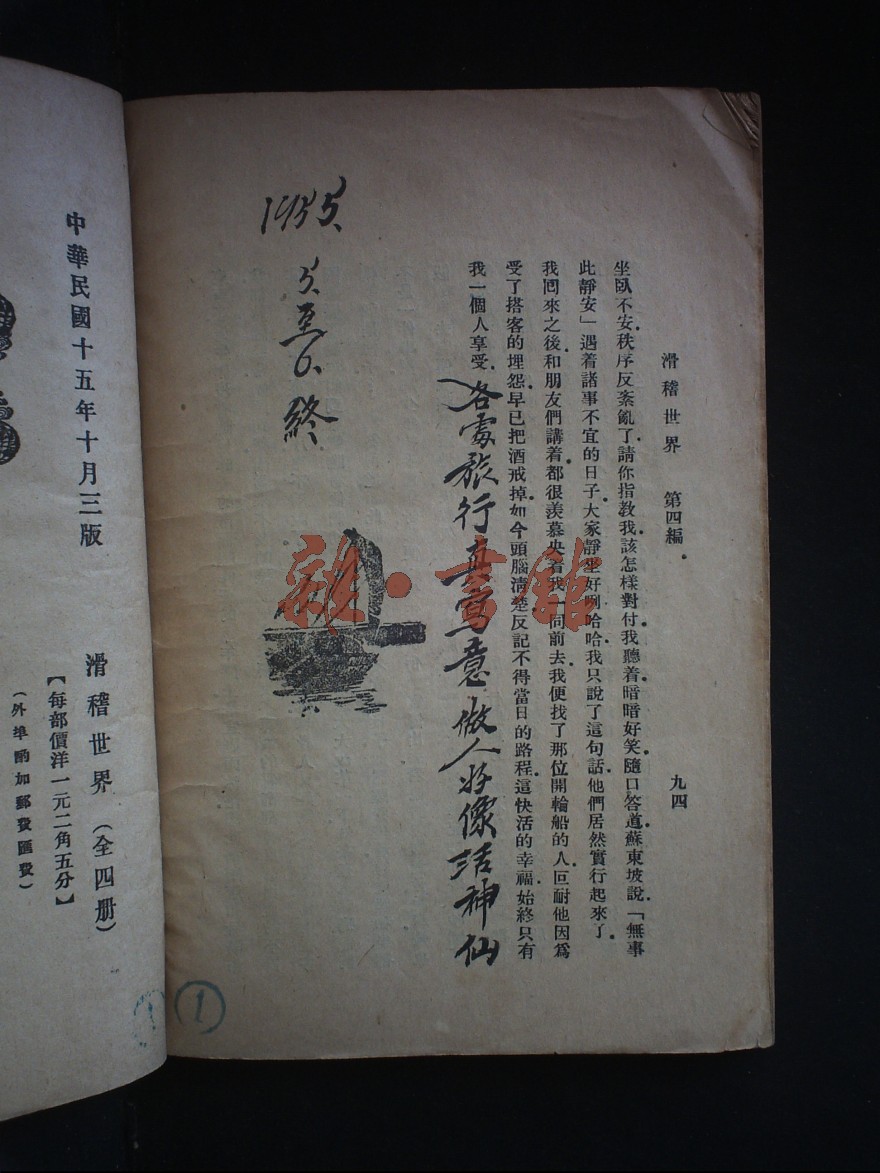 滑稽世界　第四編
九四
坐臥不安秩序反紊亂了請你指教我該怎樣對付我聽着暗暗好笑隨口答道蘇東坡說「無事
此靜安」遇着諸事不宜的日子大家靜坐好咧哈哈我只說了這句話他們居然實行起來了
我回來之後和朋友們講着都很羨慕央着我一同前去我便找了那位開輪船的人叵耐他因爲
受了搭客的埋怨早已把酒戒掉如今頭腦清楚反記不得當日的路程這快活的幸福始終只有
我一個人享受
各處旅行真寫意做人好像活神仙
1955
5.至6.終
雜·書館
1
中華民國十五年十月三版
滑稽世界（全四册）
【每部價洋一元二角五分】
（外埠酌加郵費匯費）